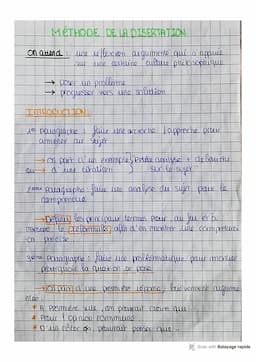 MÉTHODE DE LA DISERTATION
on attend : une reflexion argumenté qui s'appuie
sur une certaine culture philosophique
→ poser un problème
→ progresser vers une solution
INTRODUCTION :
1er paragraphe : faire une accroche / approche pour
amener au sujet
→ on part d'un exemple analyse + débouche
ou → d'une citation sur le sujet
2ème Paragraphe : faire une analyse du sujet pour le
comprendre
→ Définir les principaux termes pour au fur et à
mesure le reformuler afin d'en montrer une compréhension
précise
3ème Paragraphe : faire une problématique pour montrer
pourquoi la question se pose
→ on part d'une première réponse, brièvement argumentée
• A première vue, on pourrait croire que
• Pour l'opinion commune
• D'un côté on pourrait penser que
Scanné avec Balayage rapide